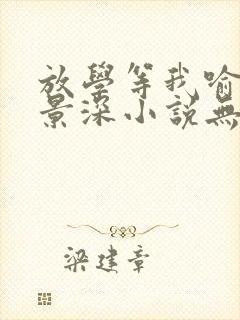 放學等我喻
景深小說無
梁建章